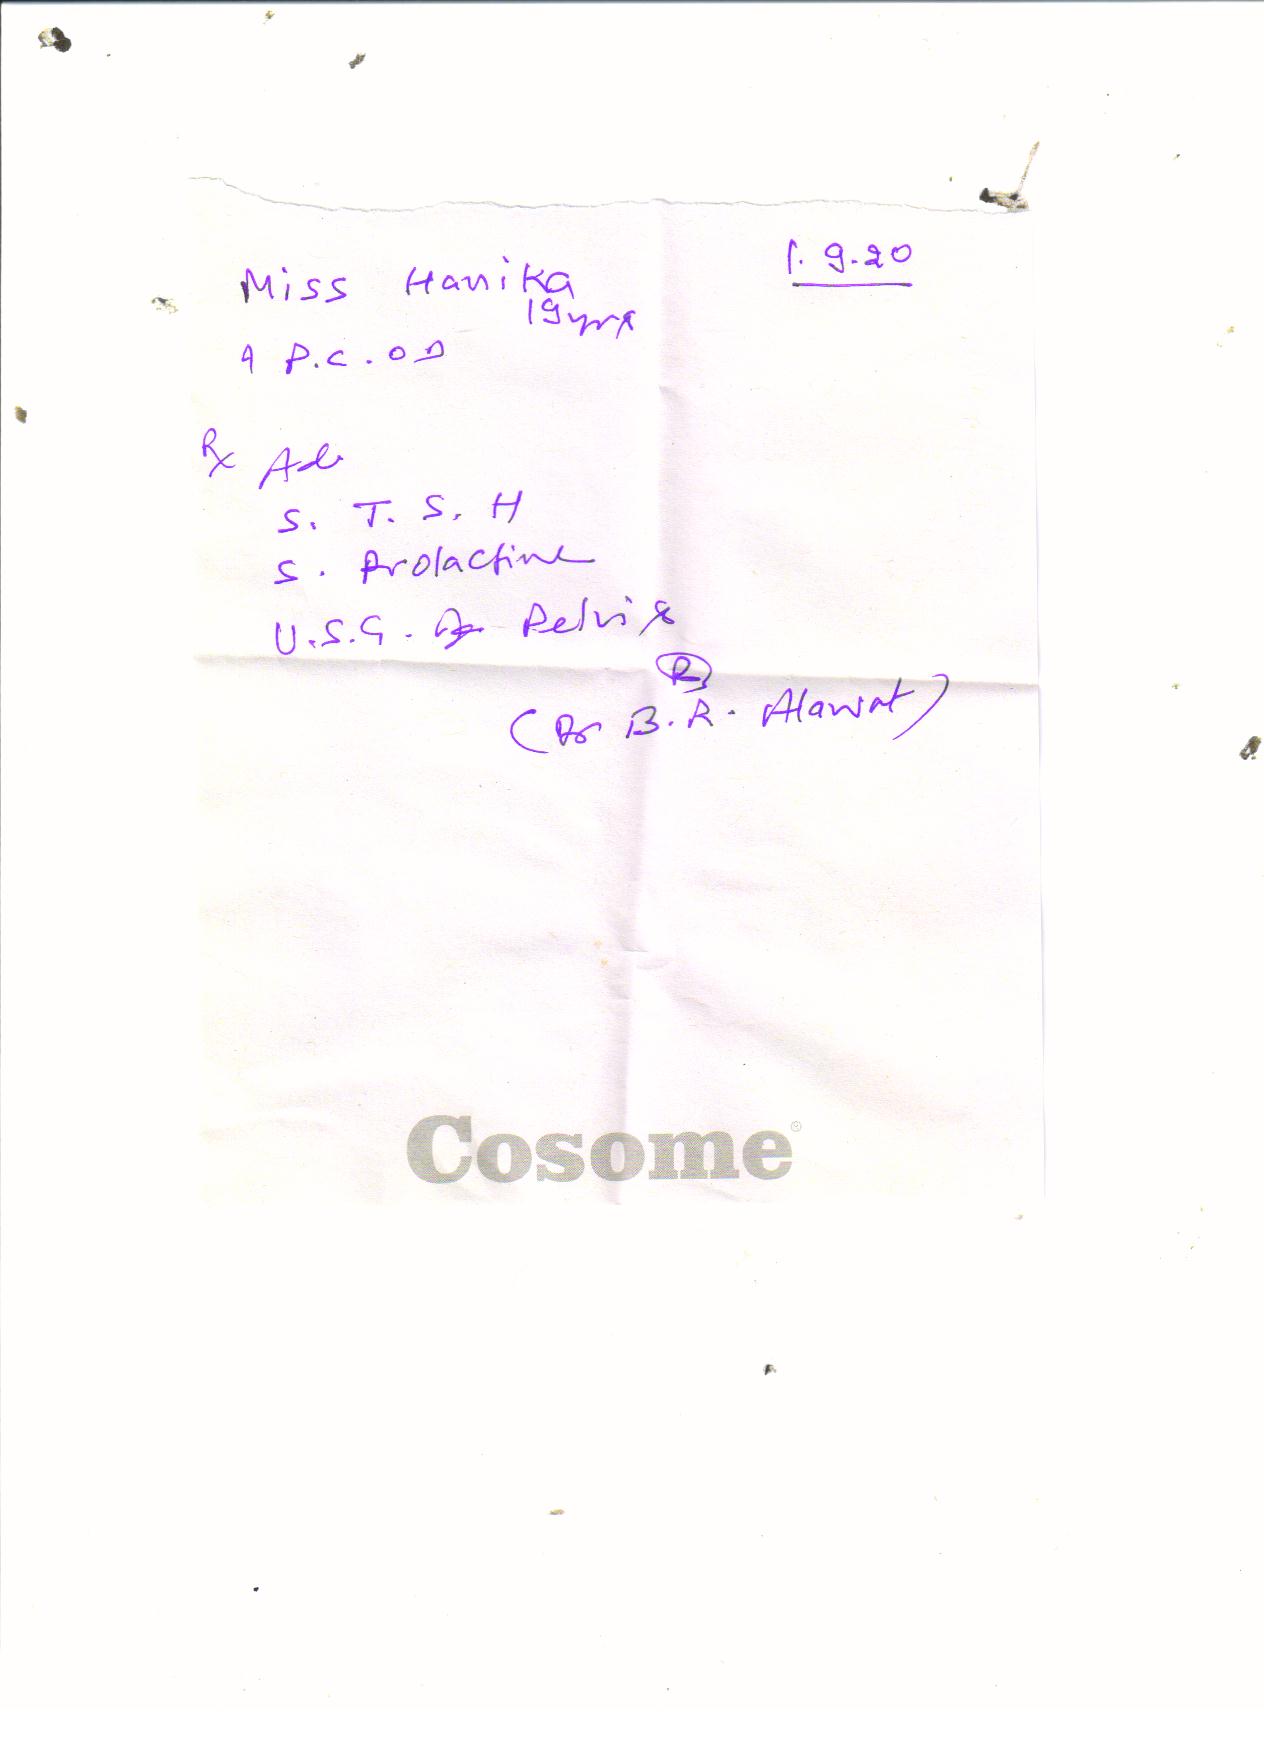 1.9.20
Miss Hanika
19 yrs
P.C.OD
Rx Adv
S. T. S. H
S. Prolactine
U.S.G. Pelvis
(Dr B.R. Alawat)
Cosome